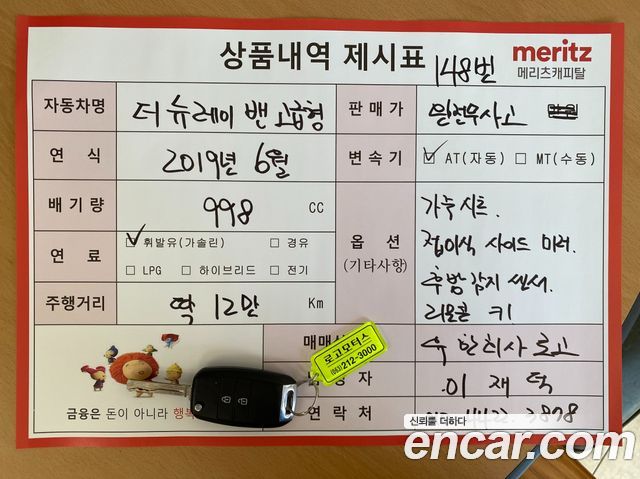 상품내역 제시표
148번
meritz
메리츠캐피탈
자동차명 더 뉴레이 밴 고급형
판매가 완전무사고
연식 2019년 6월
변속기 ☑ AT(자동) ☐ MT(수동)
배기량 998 CC
옵션
(기타사항)
가죽시트.
접이식 사이드 미러.
후방감지 센서.
리모콘 키
연료 ☑ 휘발유(가솔린) ☐ 경유
☐ LPG ☐ 하이브리드 ☐ 전기
주행거리 딱 12만 Km
매매
로고
자 이재덕
연락처
로고모터스
212-3000
금융은 돈이 아니라 행복
신뢰를 더하다
encar.com